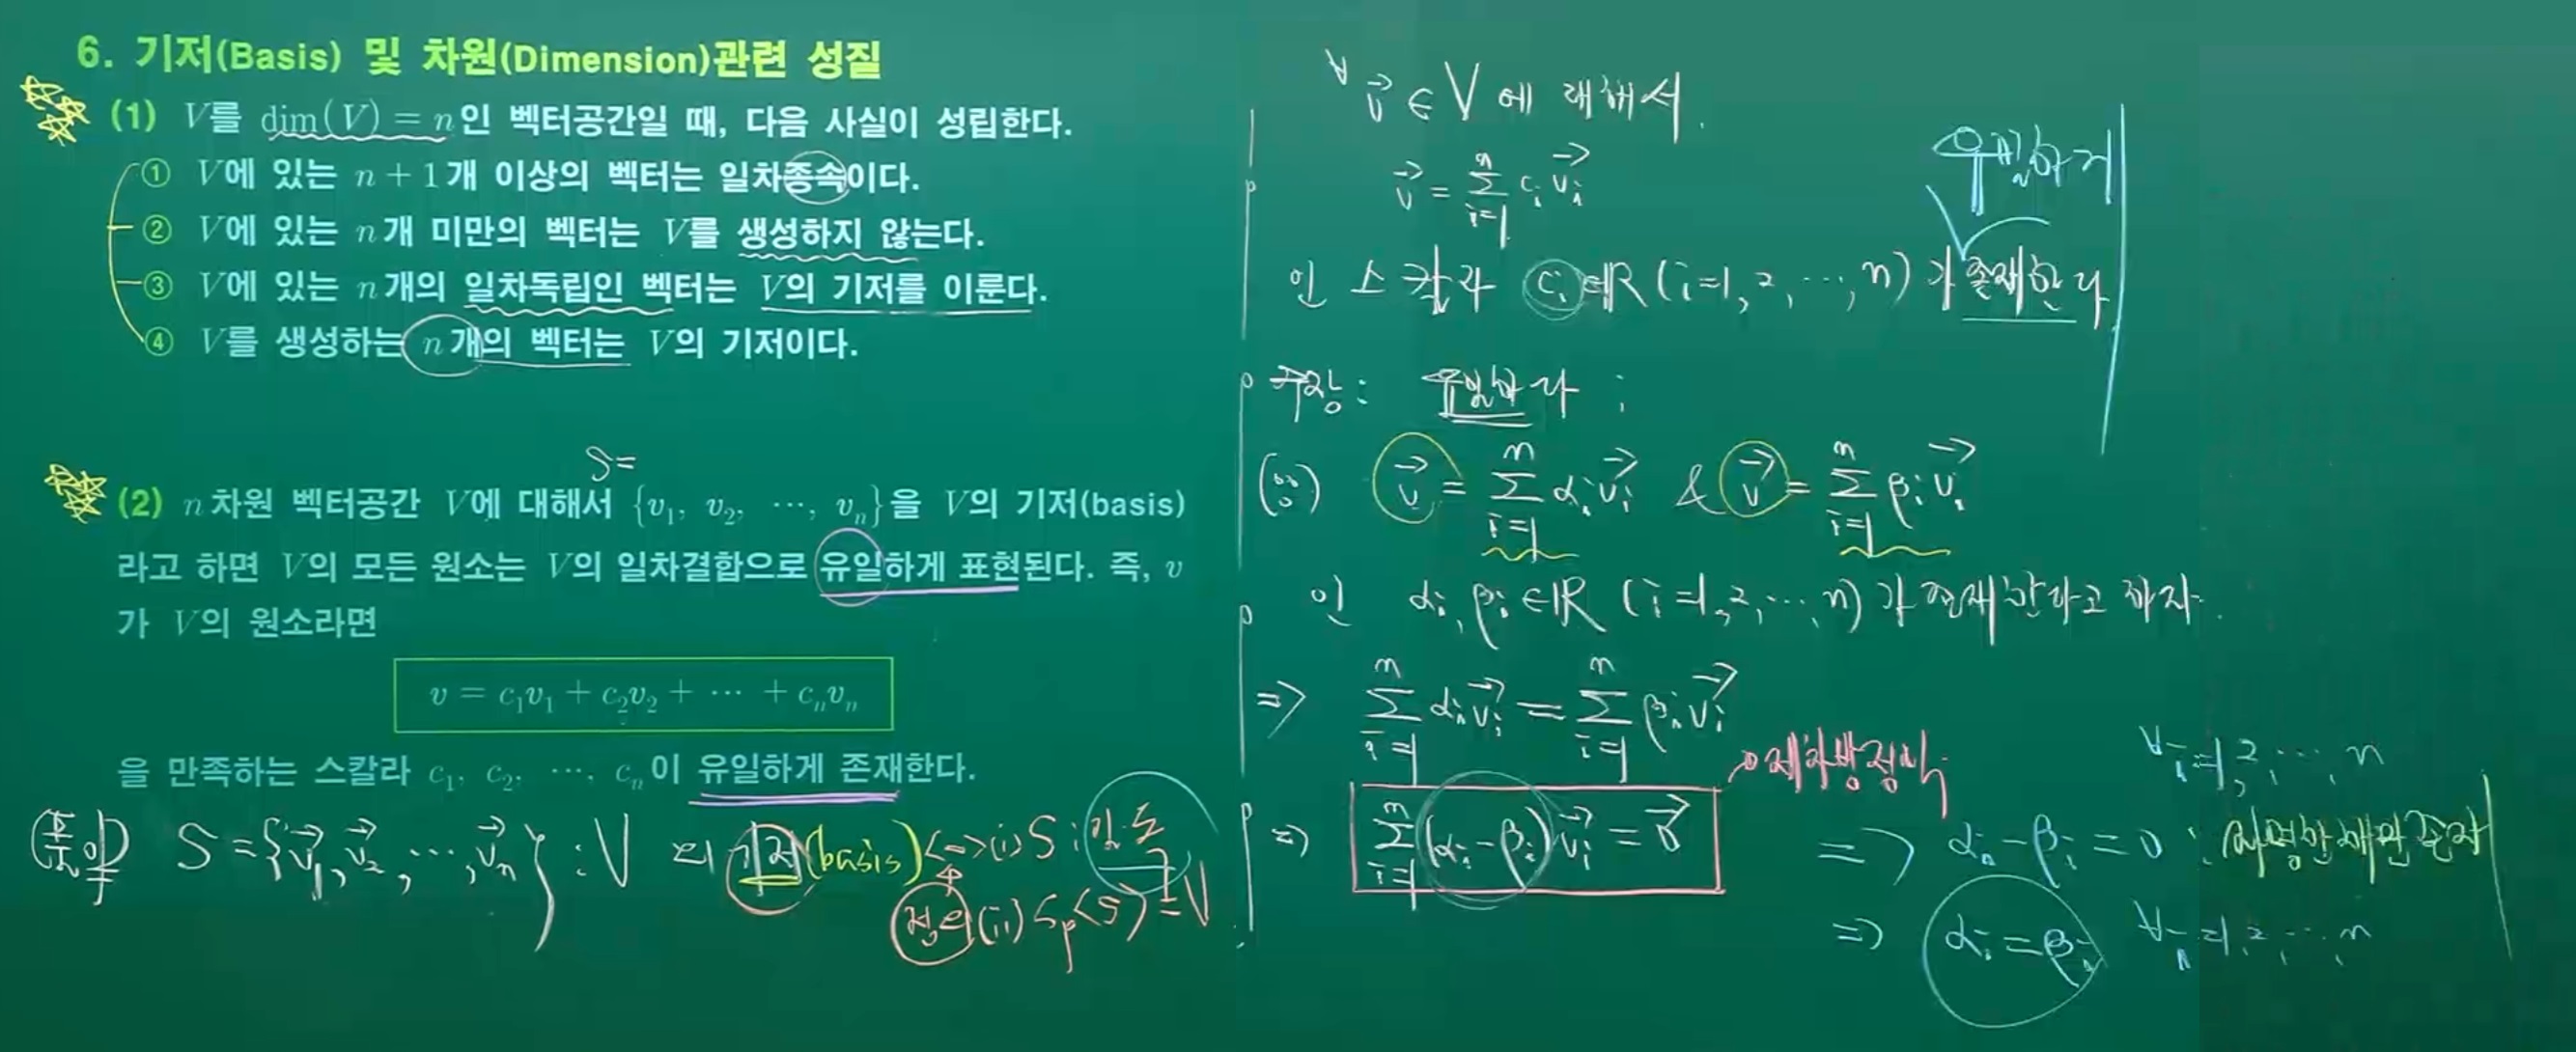 6. 기저(Basis) 및 차원(Dimension)관련 성질
(1) V를 dim(V) = n인 벡터공간일 때, 다음 사실이 성립한다.
① V에 있는 n + 1개 이상의 벡터는 일차종속이다.
② V에 있는 n개 미만의 벡터는 V를 생성하지 않는다.
③ V에 있는 n개의 일차독립인 벡터는 V의 기저를 이룬다.
④ V를 생성하는 n개의 벡터는 V의 기저이다.
S=
(2) n차원 벡터공간 V에 대해서 {v₁, v₂, ⋯, vₙ}을 V의 기저(basis)
라고 하면 V의 모든 원소는 V의 일차결합으로 유일하게 표현된다. 즉, v
가 V의 원소라면
v = c₁v₁ + c₂v₂ + ⋯ + cₙvₙ
을 만족하는 스칼라 c₁, c₂, ⋯, cₙ이 유일하게 존재한다.
(풀이) S={v⃗₁, v⃗₂, ⋯, v⃗ₙ} : V의 기저(basis) <=>(i) S : 일.독
정의 (ii) Sp<S> = V
∀v⃗ ∈ V에 대해서.
유일하게
v⃗ = Σ_{i=1}^{n} cᵢ v⃗ᵢ
인 스칼라 cᵢ∈ℝ (i=1, 2, ⋯, n)가 존재한다
주장: 유일하다 ;
(∵) v⃗ = Σ_{i=1}^{n} αᵢ v⃗ᵢ & v⃗ = Σ_{i=1}^{n} βᵢ v⃗ᵢ
인 αᵢ, βᵢ ∈ℝ (i=1, 2, ⋯, n)가 존재한다고 하자.
=> Σ_{i=1}^{n} αᵢ v⃗ᵢ = Σ_{i=1}^{n} βᵢ v⃗ᵢ
제차방정식
=> Σ_{i=1}^{n} (αᵢ-βᵢ) v⃗ᵢ = 0⃗
∀i=1, 2, ⋯, n
=> αᵢ-βᵢ = 0 : 자명한 해만 존재
=> αᵢ = βᵢ ∀i=1, 2, ⋯, n